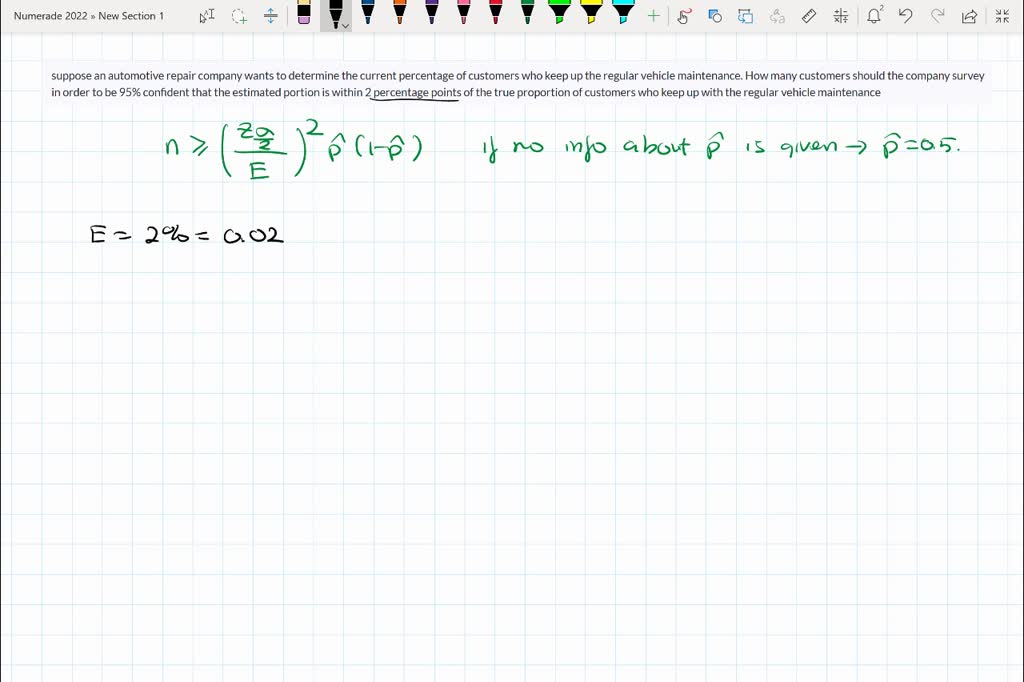 Numerade 2022 » New Section 1
2
suppose an automotive repair company wants to determine the current percentage of customers who keep up the regular vehicle maintenance. How many customers should the company survey
in order to be 95% confident that the estimated portion is within 2 percentage points of the true proportion of customers who keep up with the regular vehicle maintenance
n ≥ (zα/2 / E)² p̂ (1-p̂) if no info about p̂ is given → p̂=0.5.
E = 2% = 0.02